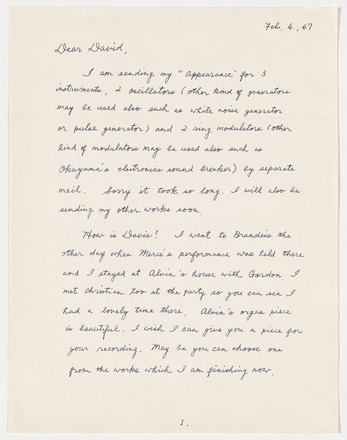 Feb. 4, 67
Dear David,
I am sending my "Appearance" for 3
instruments, 2 oscillators (other kind of generators
may be used also such as white noise generator
or pulse generator) and 2 ring modulators (other
kind of modulators may be used also such as
Okuyama's electronics sound breaker) by separate
mail. Sorry it took so long. I will also be
sending my other works soon.
How is Davis! I went to Brandeis the
other day when Merce's performance was held there
and I stayed at Alvin's house with Gordon I
met Christian too at the party so you can see I
had a lonely time there. Alvin's organ piece
is beautiful. I wish I can give you a piece for
your recording. May be you can choose one
from the works which I am finishing now.
1.